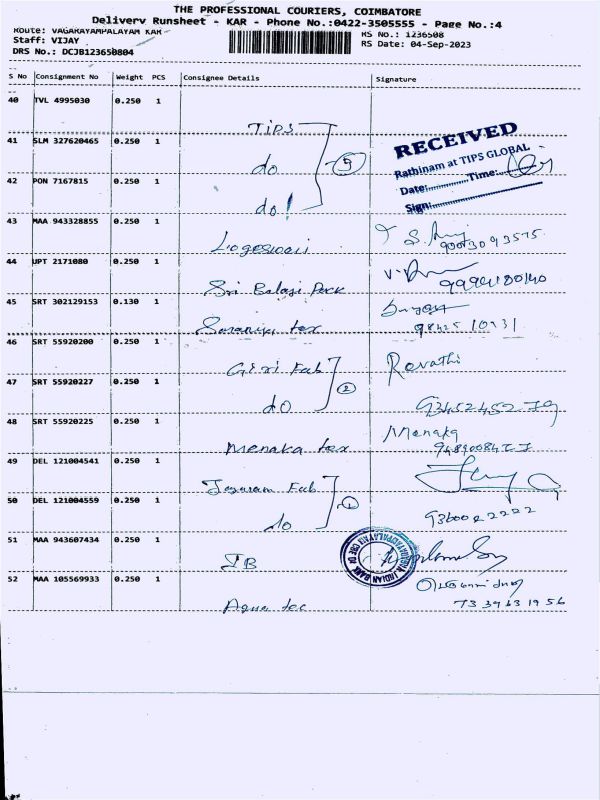 THE PROFESSIONAL COURIERS, COIMBATORE
Delivery Runsheet - KAR - Phone No.:0422-3505555 - Page No.:4
Route: VAGARAYAMPALAYAM KAR
RS No.: 1236508
Staff: VIJAY
RS Date: 04-Sep-2023
DRS No.: DCJB123650804
S No Consignment No Weight PCS Consignee Details Signature
40 TVL 4995030 0.250 1
TIPS
41 SLM 327620465 0.250 1
do
42 PON 7167815 0.250 1
do!
RECEIVED
Rathinam at TIPS GLOBAL
Date: Time:
Sign:
43 MAA 943328855 0.250 1
Logeswari
44 UPT 2171080 0.250 1
Sri Balaji Pack
45 SRT 302129153 0.130 1
tex
46 SRT 55920200 0.250 1
Giri Fab
Revathi
47 SRT 55920227 0.250 1
do
48 SRT 55920225 0.250 1
Menaka tex
Menaka
49 DEL 121004541 0.250 1
Jayaram Fab
50 DEL 121004559 0.250 1
do
9360022222
51 MAA 943607434 0.250 1
IB
INDIAN BANK
52 MAA 105569933 0.250 1
Aqua tec
7339631956